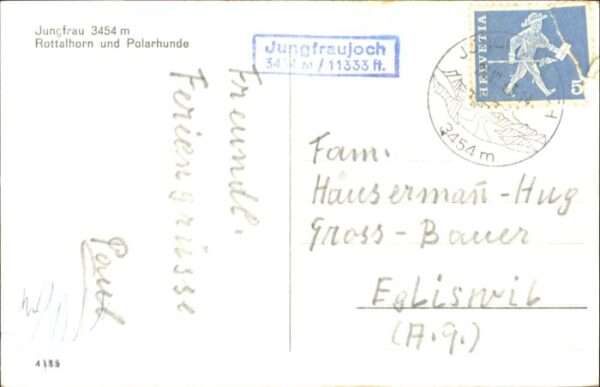 Jungfrau 3454 m
Rottalhorn und Polarhunde
Jungfraujoch
3454 m / 11333 ft.
HELVETIA
5
3454 m
Freundl.
Feriengrüsse
Paul
Fam.
Hausermañ-Hug
Gross-Bauer
Egliswil
(A.g.)